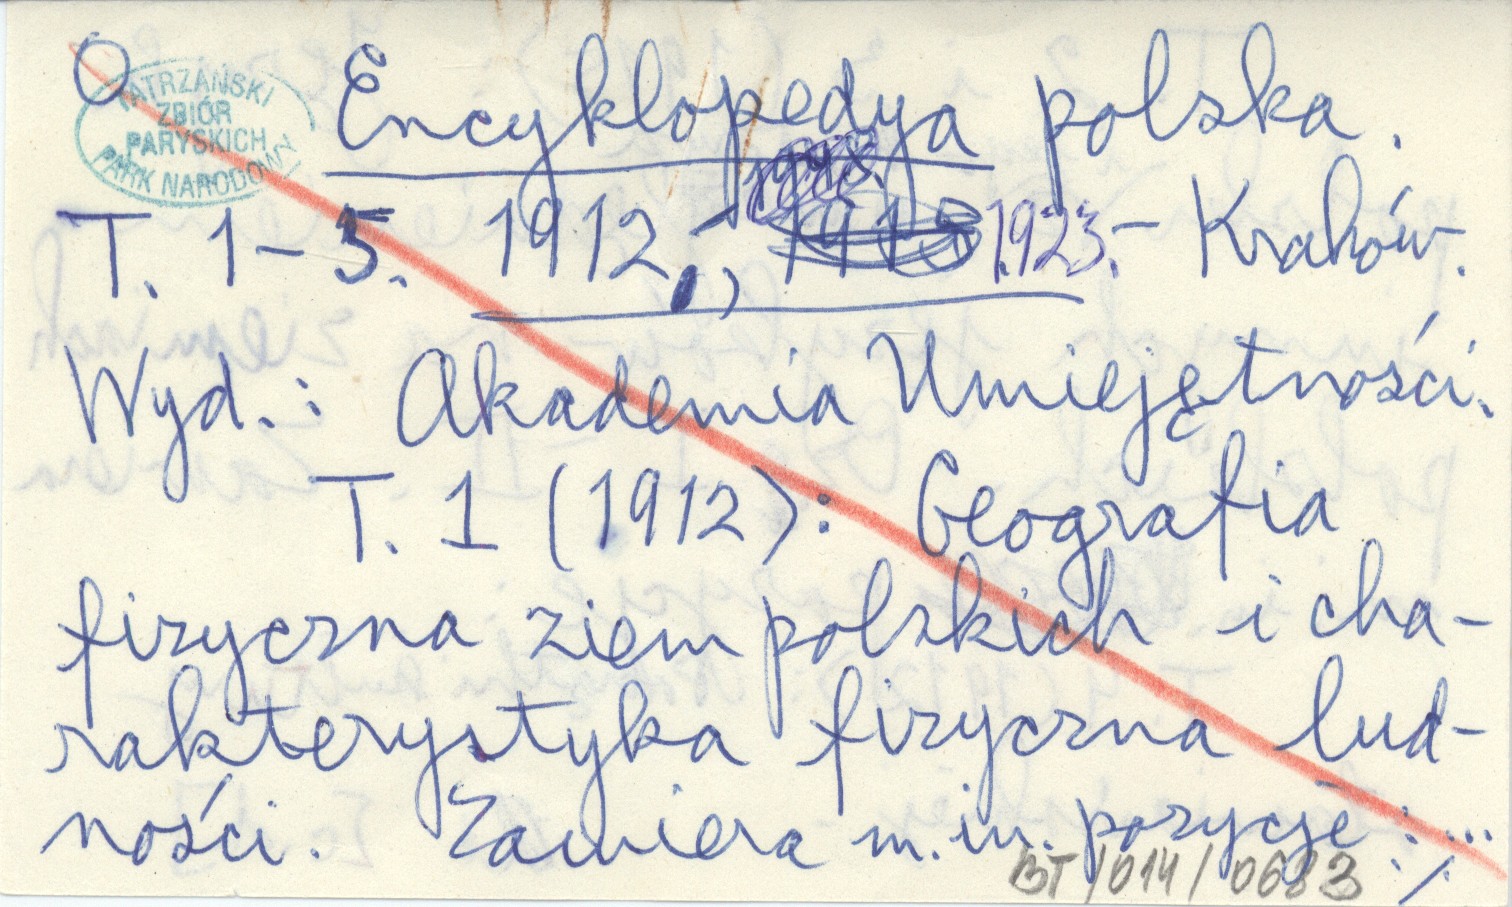 O
TATRZAŃSKI
ZBIÓR
PARYSKICH
PARK NARODOWY
Encyklopedya polska.
T. 1-5. 1912, 1923.- Kraków.
Wyd.: Akademia Umiejętności.
T. 1 (1912): Geografia
fizyczna ziem polskich i cha-
rakterystyka fizyczna lud-
ności. Zawiera m.in. pozycje: ...
BT/014/0683 ./.